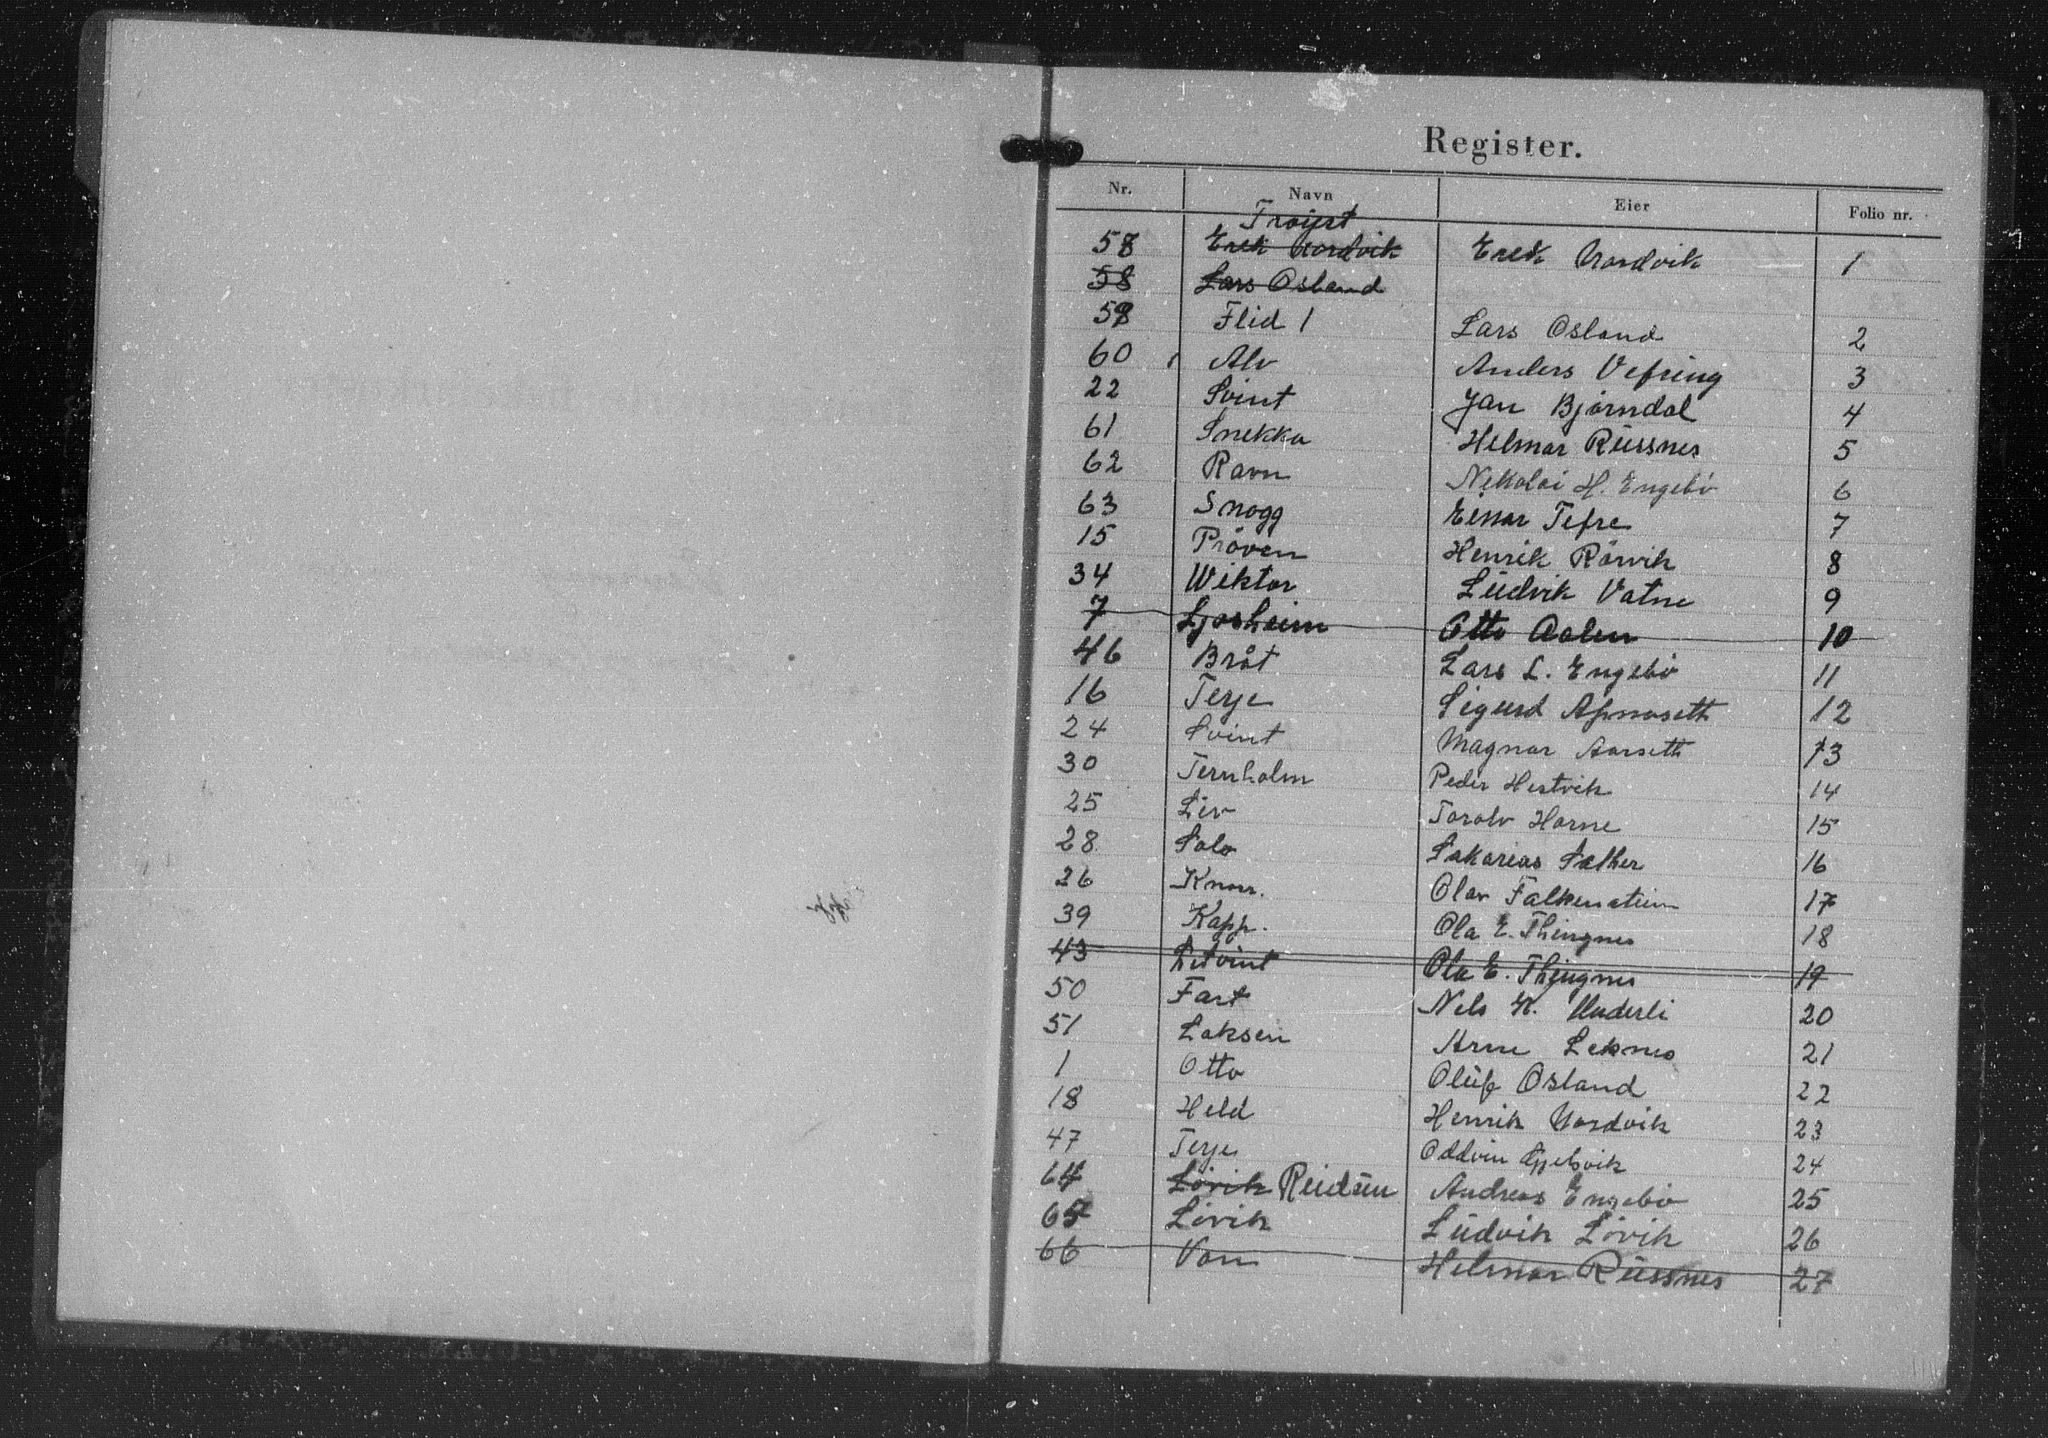 Register.
Nr. Navn Eier Folio nr.
Trøyst
58 Erek Nordvik Erek Nordvik 1
58 Lars Osland
59 Flid 1 Lars Osland 2
60 Alv Anders Vefring 3
22 Svint Jan Bjørndal 4
61 Snekka Helmar Rüssnes 5
62 Ravn Nikolai H. Engebø 6
63 Snogg Einar Tefre 7
15 Prøven Henrik Rörvik 8
34 Wiktor Lüdvik Vatne 9
7 Ljosheim Otto Aalen 10
46 Bråt Lars L. Engebø 11
16 Terje Sigurd Apnaseth 12
24 Svint Magnar Aarseth 13
30 Ternholm Peder Hestvik 14
25 Liv Toralv Horne 15
28 Salo Sakarias Sæther 16
26 Knarr. Olav Falkenstein 17
39 Kapp. Ola E. Thingnes 18
43 Ola E. Thingnes 19
50 Fart Nels K. Underli 20
51 Laksen Arne Leknes 21
1 Otto Olüf Osland 22
18 Held Henrik Nordvik 23
47 Terje Oddvin Gjelsvik 24
64 Lövik Reidün Andreas Engebø 25
65 Lövik Lüdvik Lövik 26
66 Von Helmar Rüssnes 27